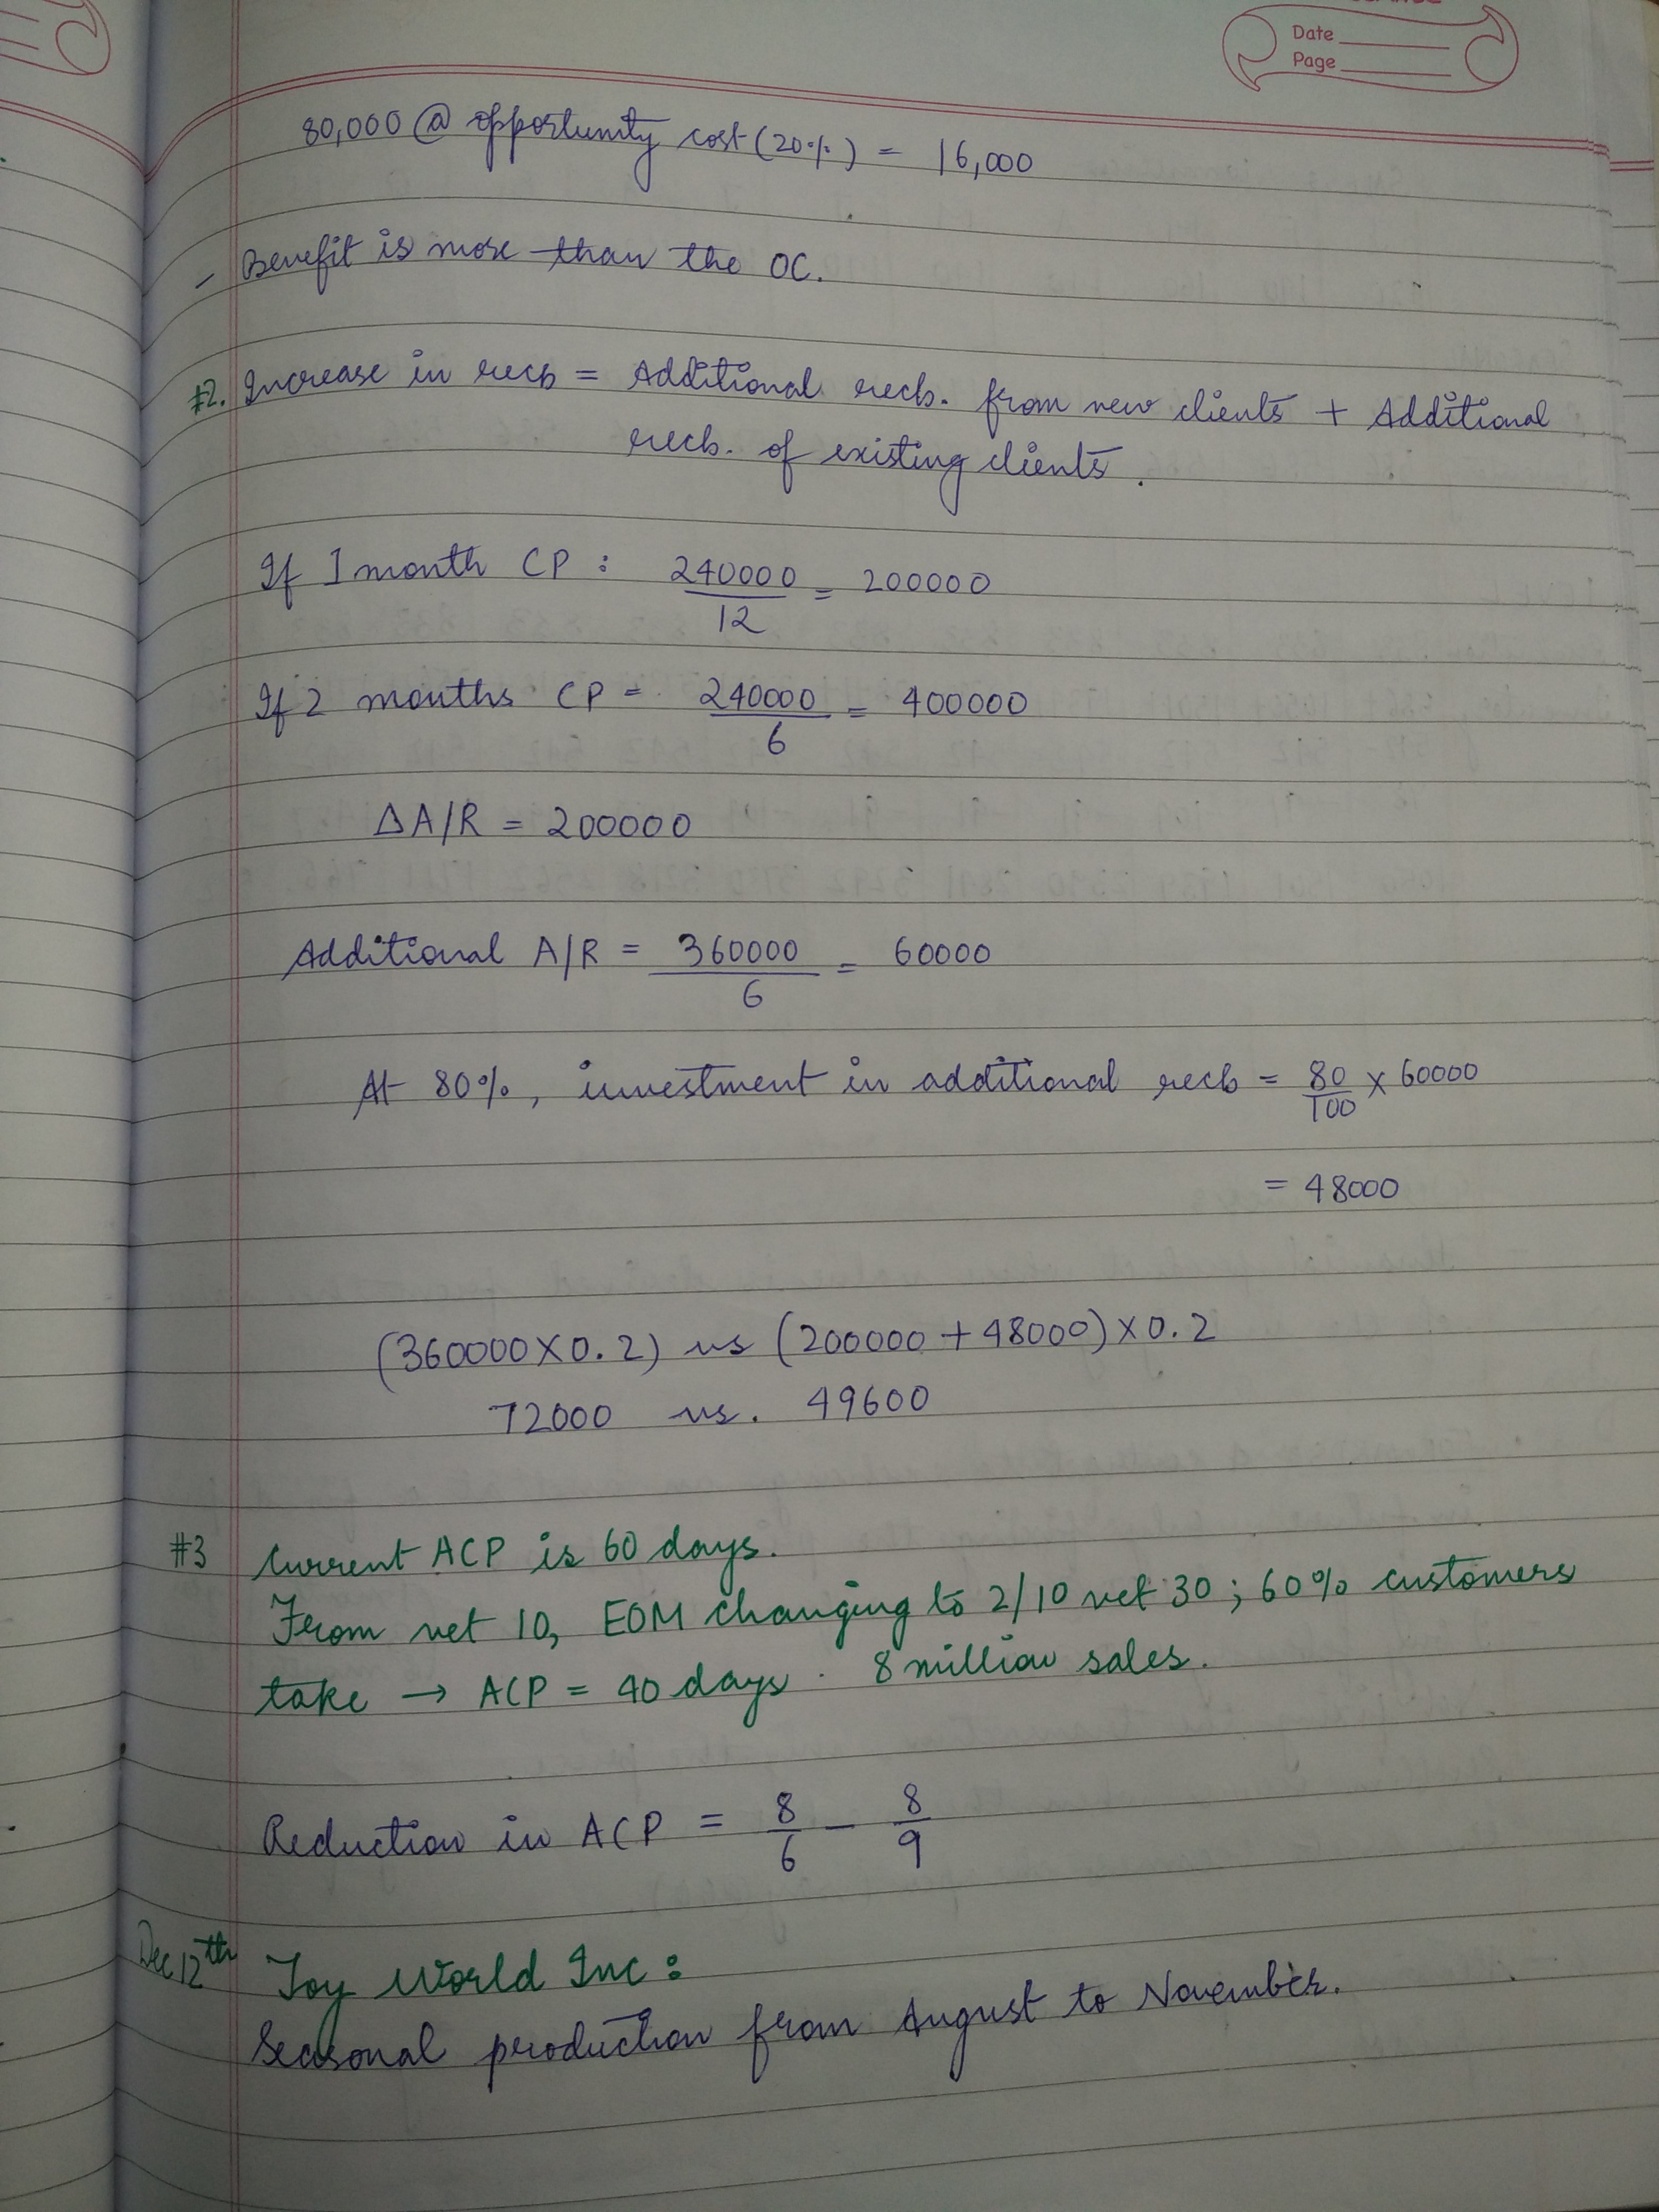 Date
Page
80,000 @ opportunity cost (20%) = 16,000
- Benefit is more than the OC.
#2. Increase in recb = Additional recb. from new clients + Additional
recb. of existing clients.
If 1 month CP : 240000/12 = 200000
If 2 months CP = 240000/6 = 400000
ΔA/R = 200000
Additional A/R = 360000/6 = 60000
At 80%, investment in additional recb = 80/100 × 60000
= 48000
(360000×0.2) vs (200000+48000)×0.2
72000 vs. 49600
#3 Current ACP is 60 days.
From net 10, EOM changing to 2/10 net 30 ; 60% customers
take → ACP = 40 days . 8 million sales.
Reduction in ACP = 8/6 - 8/9
Dec 12th Toy World Inc :
Seasonal production from August to November.